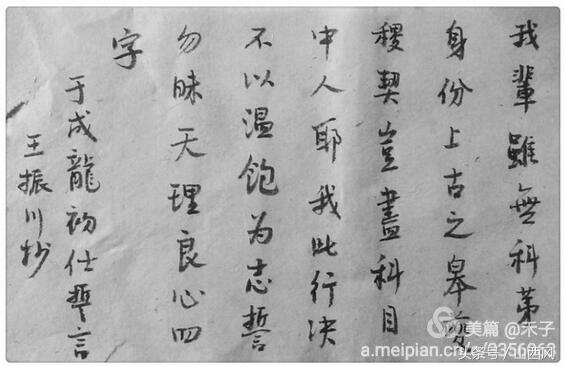 我輩雖無科苐
身份上古之皋夔
稷契豈盡科目
中人耶我此行决
不以温飽为志誓
勿昧天理良心四
字
于成龍初仕誓言
王振川抄
美篇 @禾子
a.meipian.cn/c/
头条号/山西网